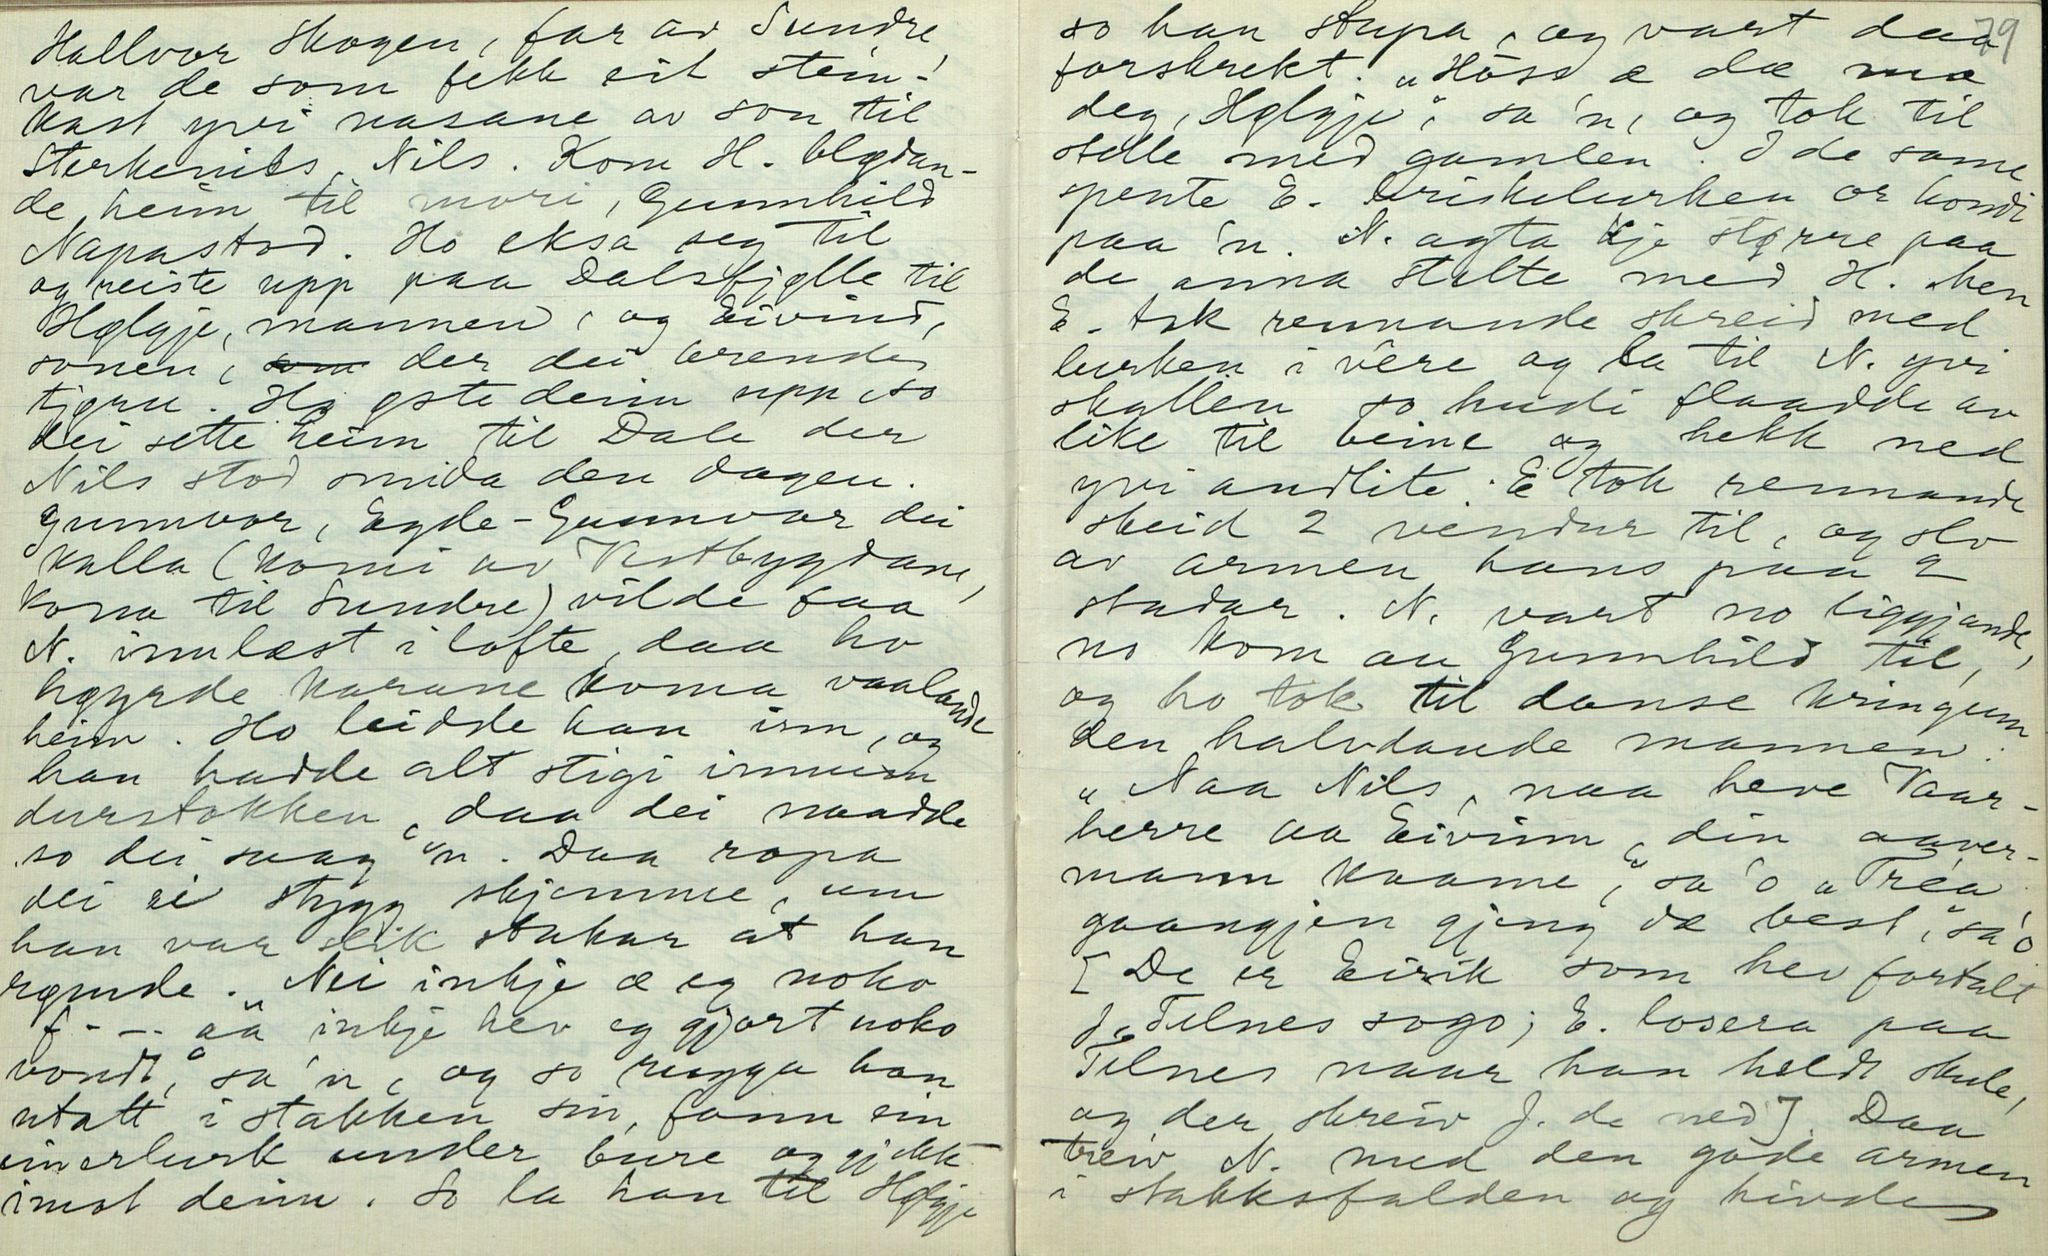 Hallvor Skogen, far av Sundre,
var de som fekk eit stein-
kast yvi nasane av son til
Sterkenils, Nils. Kom H. blødan-
de heim til mori, Gunnhild
Napastod. Ho eksa seg til
og reiste upp paa Dalsfjølle til
Hølgje, mannen, og Eivind,
sonen, der dei brende
tjøru. Ho øste deim upp, so
dei sette heim til Dale der
Nils stod smida den dagen.
Gunnvor, Egde-Gunnvor dei
kalla (komi av Vestbygdane,
kona til Sundre) vilde faa
N. innlæst i lofte, daa ho
høyrde karane koma vaalande
heim. Ho leidde han inn, og
han hadde alt stigi innum
durstokken, daa dei naadde
so dei saag 'n. Daa ropa
dei ei stygg skjemme, um
han var slik stakar at han
rømde. "Nei inkje æ eg noko
f - - - aa inkje hev eg gjort noko
vondt," sa 'n, og so rugga han
utatt i stakken sin, fann ein
einerlurk under bure og gjekk
imot deim. So la han til Hølgje
79
so han stupa, og vart daa
forskrekt. "Hósé æ dæ mæ
deg, Hølgje", sa 'n, og tok til
stelle med gamlen. I de same
spente E. briskelurken or hondi
paa 'n. N. agta kje større paa
de anna stelte med H. Men
E. tok rennande skreid med
lurken i være og la til N. yvi
skallen so hudi flaadde av
like til beine og hekk ned
yvi andlite. E tok rennande
skeid 2 vendur til, og slo
av armen hans paa 2
stadar. N. vart no liggjande,
no kom au Gunnhild til,
og ho tok til danse kringum
den halvdaude mannen.
"Naa Nils, naa heve Vaar-
herre aa Eivinn, din aaver-
mann kaame," sa 'o "Tréa
gaangjen gjeng dæ best," sa 'o
[De er Eirik som hev fortalt
J. Telnes sogo; E. losera paa
Telnes naar han heldt skule,
og der skreiv J. de ned]. Daa
treiv N. med den gode armen
i stakksfalden og hivde